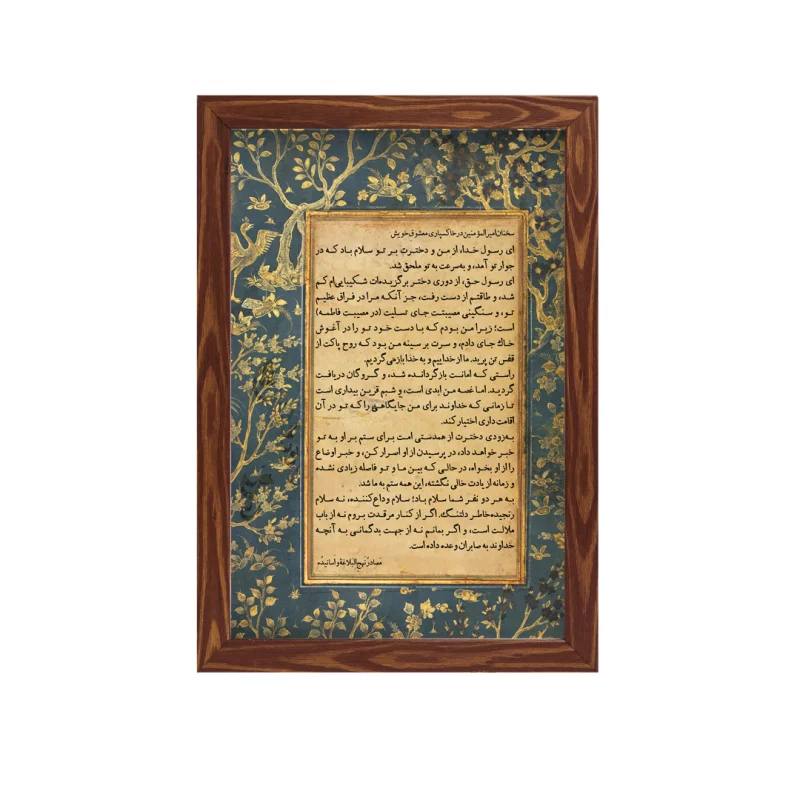 سخنان امیرالمؤمنین در خاکسپاری معشوق خویش
ای رسول خدا، از من و دخترت بر تو سلام باد که در
جوار تو آمد، و به‌سرعت به تو ملحق شد.
ای رسول حق، از دوری دختر برگزیده‌ات شکیبایی‌ام کم
شد، و طاقتم از دست رفت، جز آنکه مرا در فراق عظیم
تو، و سنگینی مصیبتت جای تسلیت (در مصیبت فاطمه)
است؛ زیرا من بودم که با دست خود تو را در آغوش
خاک جای دادم، و سرت بر سینه من بود که روح پاکت از
قفس تن پرید. ما از خداییم و به خدا بازمی‌گردیم.
راستی که امانت بازگردانده شد، و گروگان دریافت
گردید. اما غصه من ابدی است، و شبم قرین بیداری است
تا زمانی که خداوند برای من جایگاهی را که تو در آن
اقامت داری اختیار کند.
به‌زودی دخترت از همدستی امت برای ستم بر او به تو
خبر خواهد داد، در پرسیدن از او اصرار کن، و خبر اوضاع
را از او بخواه، در حالی که بین ما و تو فاصله زیادی نشده
و زمانه از یادت خالی نگشته، این همه ستم به ما شد.
به هر دو نفر شما سلام باد؛ سلام وداع‌کننده، نه سلام
رنجیده خاطر دلتنگ. اگر از کنار مرقدت بروم نه از باب
ملالت است، و اگر بمانم نه از جهت بدگمانی به آنچه
خداوند به صابران وعده داده است.
مصادر نهج البلاغة و أسانیده